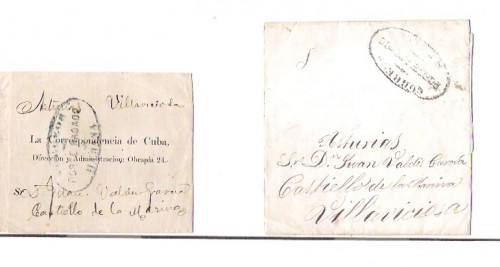 Villaviciosa
La Correspondencia de Cuba,
Dirección y Administración: Obrapía 24.
Castiello de la Marina
CORREOS
Asturias
Sr. Dn. Juan Valdés García
Castiello de la Marina
Villaviciosa